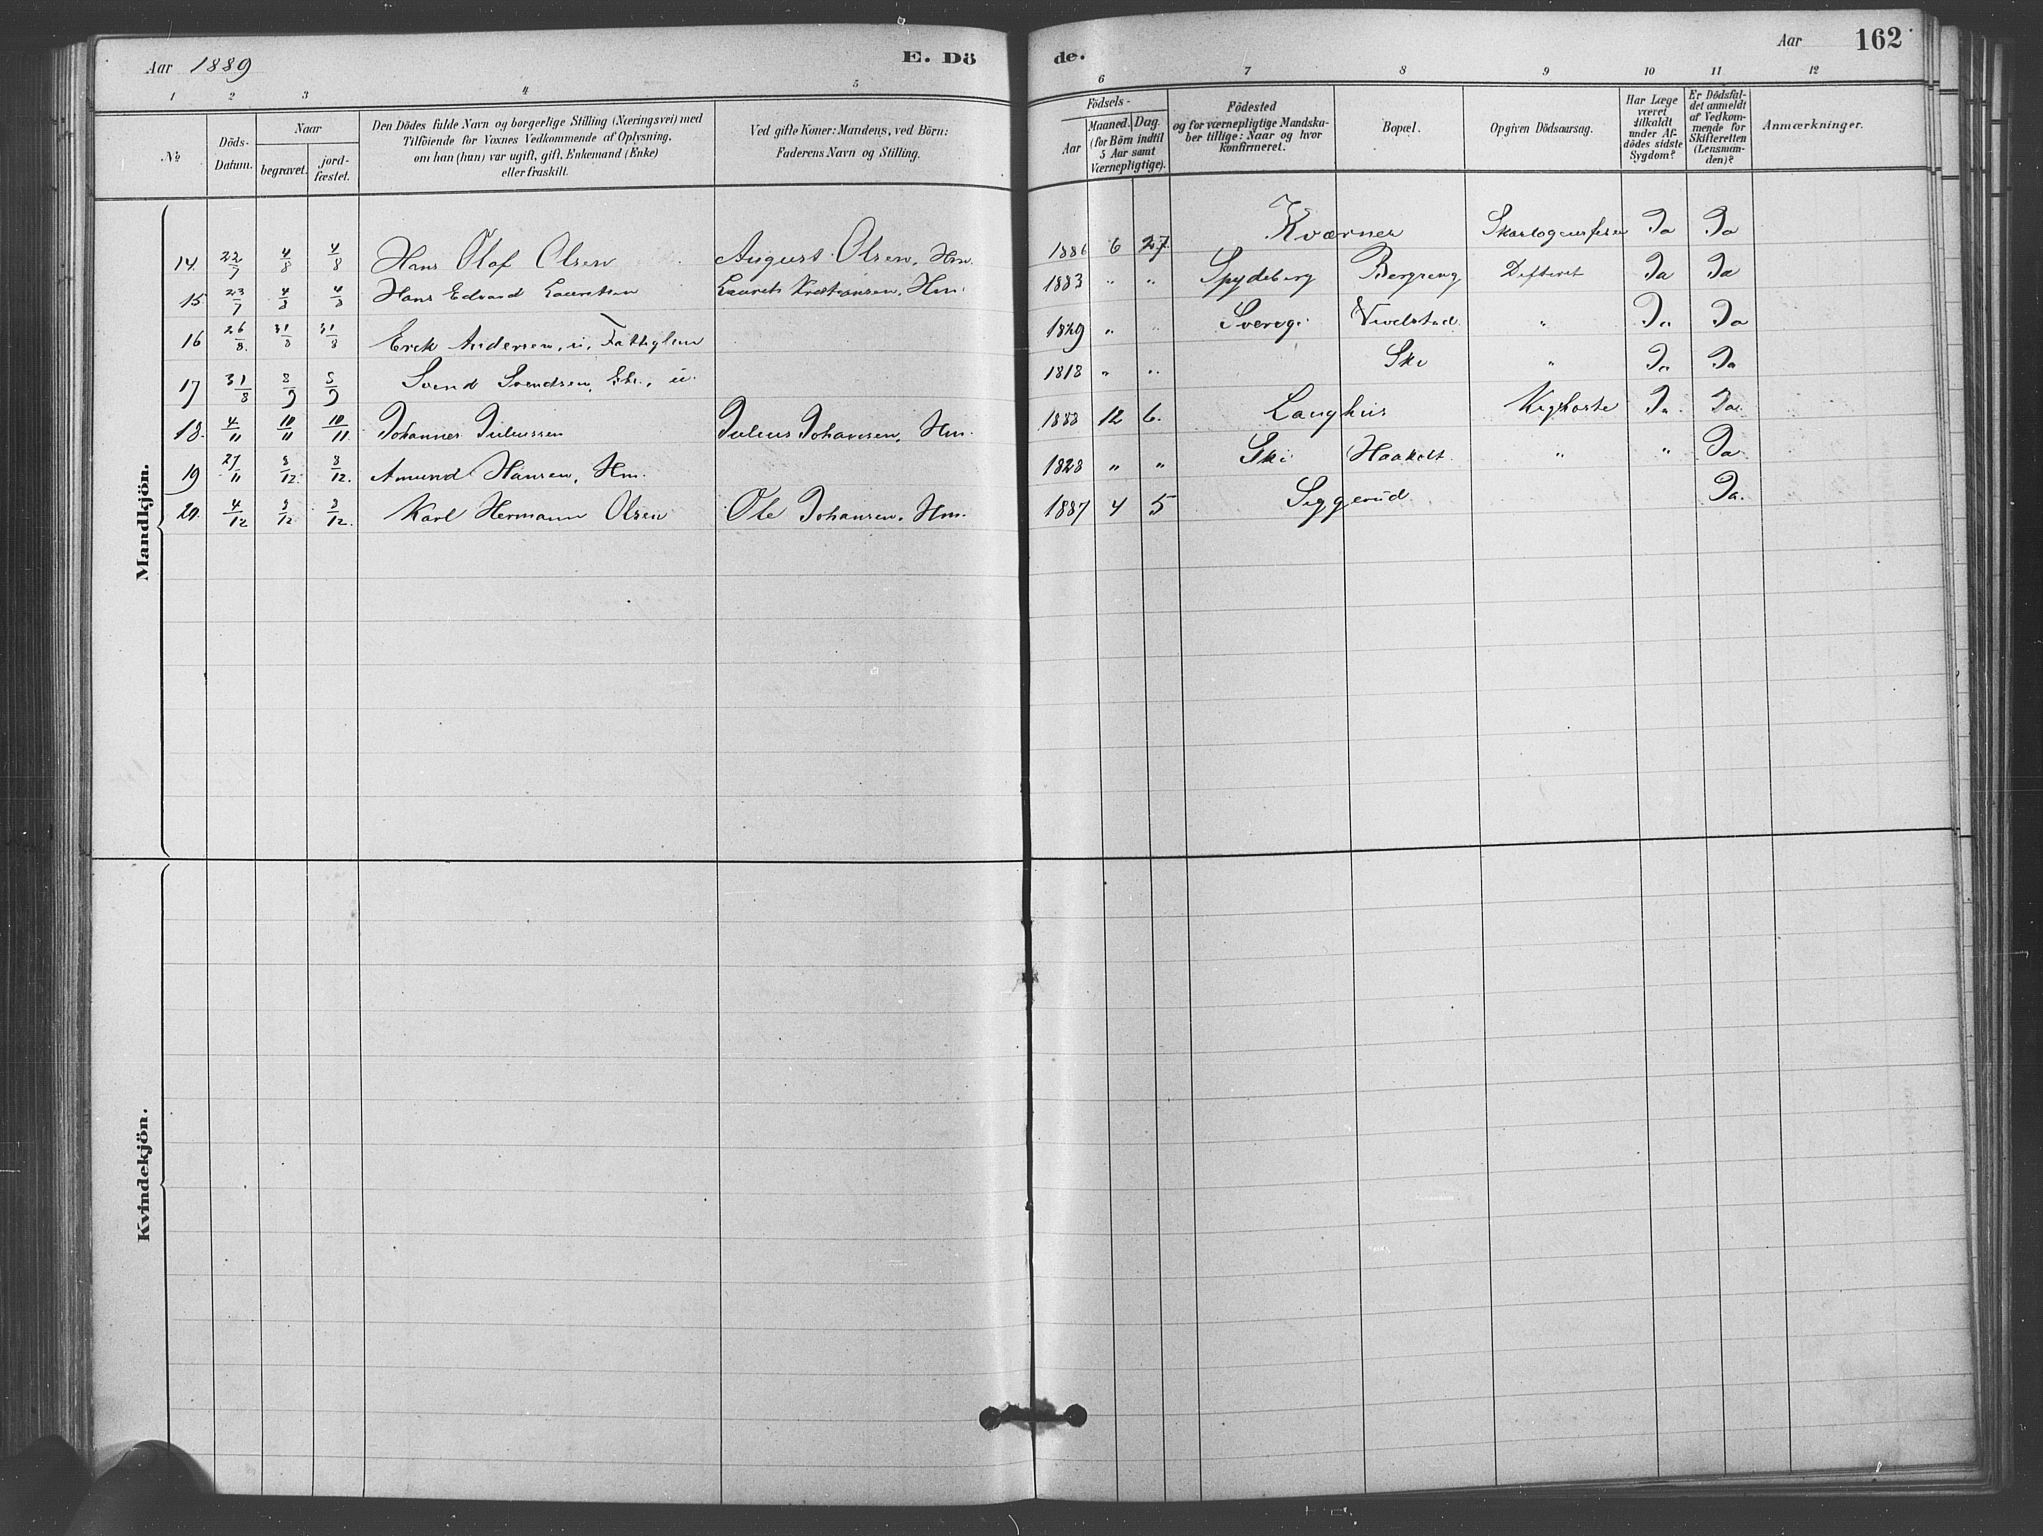 Aar 1889 E. Dö de. Aar 162
1 2 3 4 5 6 7 8 9 10 11 12
№ Döds-Datum. Naar begravet. jord-fæstet. Den Dödes fulde Navn og borgerlige Stilling (Næringsvei) med Tilföiende for Voxnes Vedkommende af Oplysning, om han (hun) var ugift, gift, Enkemand (Enke) eller fraskilt. Ved gifte Koner: Mandens, ved Börn: Faderens Navn og Stilling. Födsels- Aar Maaned. Dag. (for Börn indtil 5 Aar samt Værnepligtige). Födested og for værnepligtige Mandska-ber tillige: Naar og hvor konfirmeret. Bopæl. Opgiven Dödsaarsag. Har Læge været tilkaldt under Af-dödes sidste Sygdom? Er Dödsfal-det anmeldt af Vedkom-mende for Skifteretten (Lensman-den)? Anmærkninger.
Mandkjön.
14. 22/7 4/8 4/8 Hans Olaf Olsen August Olsen, Hm. 1886 6 27. Kværner Ja Ja
15 23/7 4/8 4/8 Hans Edvard Lauretsen Laurets Kristiansen, Hm. 1883 " " Spydeberg Bergseng Defteret Ja Ja
16 26/8. 31/8 31/8 Erik Andersen, u, Fattiglem 1829 " " Sverige Vevelstad " Ja Ja
17 31/8 8/9 8/9 Svend Svendsen, u. 1818 " " Ski " Ja Ja
18. 4/11 10/11 10/11. Johannes Juliussen Julius Johansen, Hm. 1888 12 6. Langhus Kighoste Ja. Ja.
19 27/11 8/12. 8/12. Amund Hansen, Hm. 1828 " " Ski Haakolt. " " Ja.
20. 4/12 8/12 8/12. Karl Hermann Olsen Ole Johansen, Hm. 1887 4 5 Siggerud. Ja.
Kvindekjön.